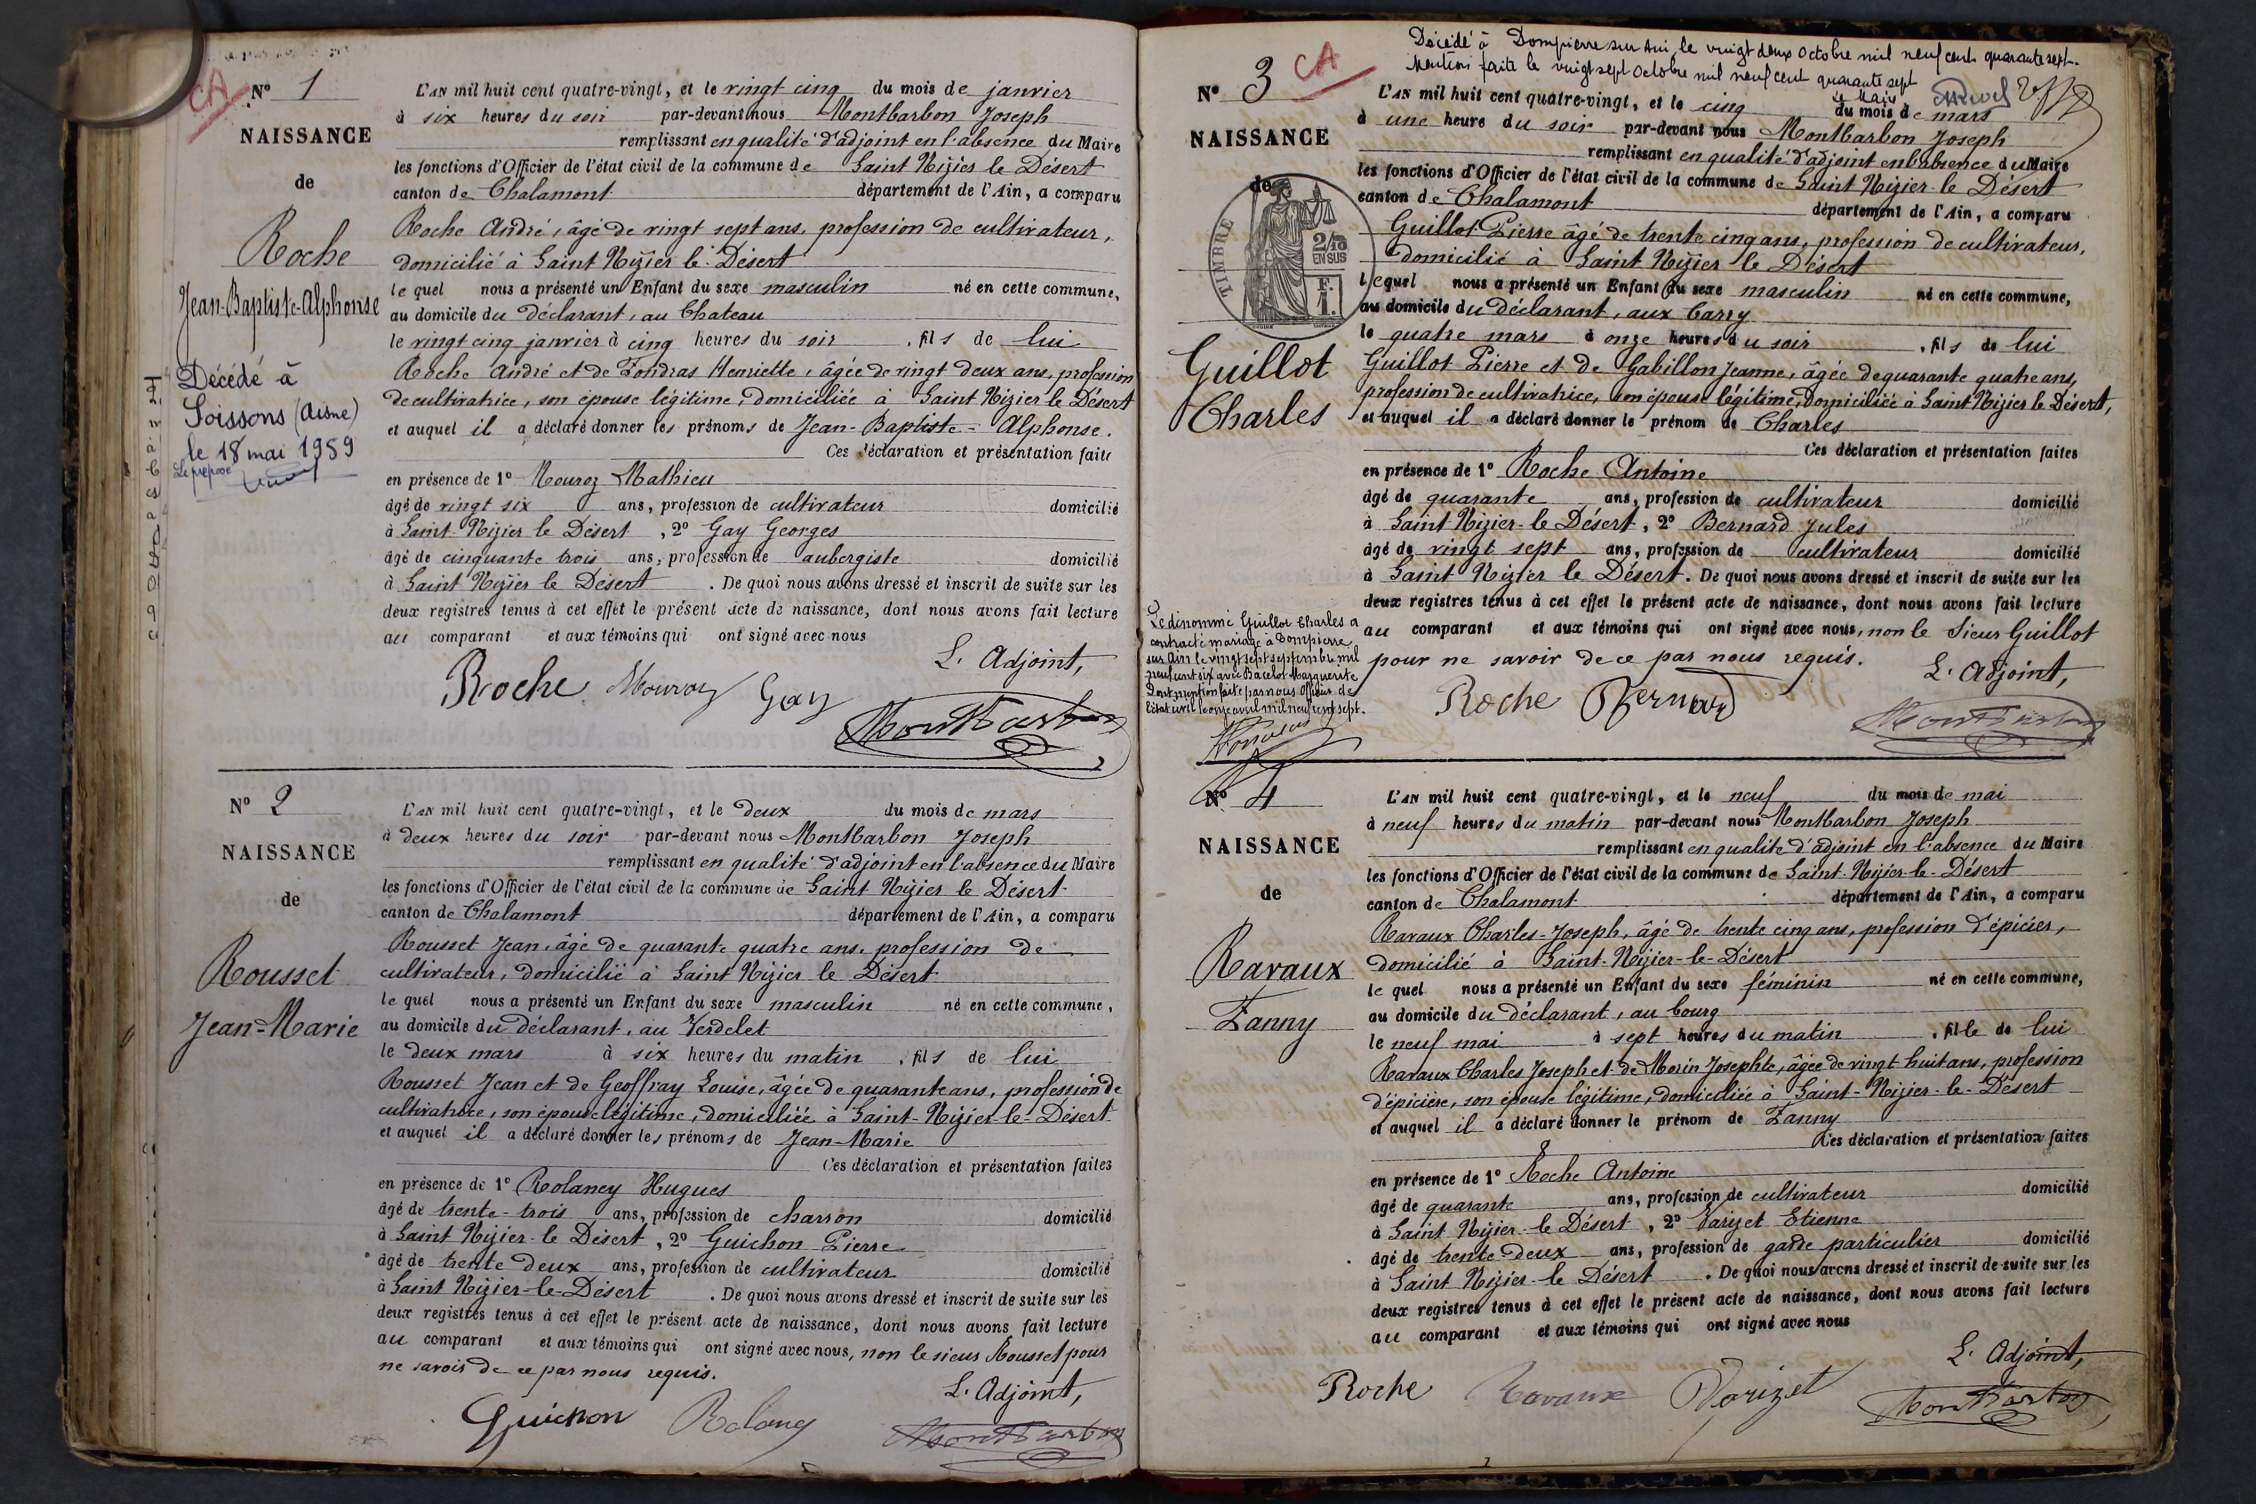 CA
Nº 1
NAISSANCE
de
Roche
Jean-Baptiste-Alphonse
Décédé à
Soissons (Aisne)
le 18 mai 1959
Le préposé
L'AN mil huit cent quatre-vingt, et le vingt cinq du mois de janvier
à six heures du soir par-devant nous Montbarbon Joseph
remplissant en qualité d'adjoint en l'absence du Maire
les fonctions d'Officier de l'état civil de la commune de Saint Nizier le Désert
canton de Chalamont département de l'Ain, a comparu
Roche André, âgé de vingt sept ans, profession de cultivateur,
domicilié à Saint Nizier le Désert
le quel nous a présenté un Enfant du sexe masculin né en cette commune,
au domicile du déclarant, au Chateau
le vingt cinq janvier à cinq heures du soir, fils de lui
Roche André et de Fondras Henriette, âgée de vingt deux ans, profession
de cultivatrice, son épouse légitime, domiciliée à Saint Nizier le Désert
et auquel il a déclaré donner les prénoms de Jean-Baptiste-Alphonse.
Ces déclaration et présentation faites
en présence de 1º Mouroz Mathieu
âgé de vingt six ans, profession de cultivateur domicilié
à Saint-Nizier le Désert, 2º Gay Georges
âgé de cinquante trois ans, profession de aubergiste domicilié
à Saint Nizier le Désert. De quoi nous avons dressé et inscrit de suite sur les
deux registres tenus à cet effet le présent acte de naissance, dont nous avons fait lecture
au comparant et aux témoins qui ont signé avec nous
L'Adjoint,
Roche Mouroz Gay
Montbarbon
Nº 2
NAISSANCE
de
Rousset
Jean-Marie
L'AN mil huit cent quatre-vingt, et le deux du mois de mars
à deux heures du soir par-devant nous Montbarbon Joseph
remplissant en qualité d'adjoint en l'absence du Maire
les fonctions d'Officier de l'état civil de la commune de Saint Nizier le Désert
canton de Chalamont département de l'Ain, a comparu
Rousset Jean, âgé de quarante quatre ans, profession de
cultivateur, domicilié à Saint Nizier le Désert
le quel nous a présenté un Enfant du sexe masculin né en cette commune,
au domicile du déclarant, au Verdelet
le deux mars à six heures du matin, fils de lui
Rousset Jean et de Geoffray Louise, âgée de quarante ans, profession de
cultivatrice, son épouse légitime, domiciliée à Saint-Nizier-le-Désert
et auquel il a déclaré donner les prénoms de Jean-Marie
Ces déclaration et présentation faites
en présence de 1º Rolancy Hugues
âgé de trente-trois ans, profession de charron domicilié
à Saint Nizier-le Désert, 2º Guichon Pierre
âgé de trente deux ans, profession de cultivateur domicilié
à Saint Nizier-le-Désert. De quoi nous avons dressé et inscrit de suite sur les
deux registres tenus à cet effet le présent acte de naissance, dont nous avons fait lecture
au comparant et aux témoins qui ont signé avec nous, non le sieur Rousset pour
ne savoir de ce par nous requis.
L'Adjoint,
Guichon Rolancy
Montbarbon
Décédé à Dompierre sur Ain, le vingt deux Octobre mil neuf cent quarante sept.
Mention faite le vingt sept Octobre mil neuf cent quarante sept
Le Maire
CA
Nº 3
NAISSANCE
de
TIMBRE
2/10
EN SUS
F.
1.
Guillot
Charles
L'AN mil huit cent quatre-vingt, et le cinq du mois de mars
à une heure du soir par-devant nous Montbarbon Joseph
remplissant en qualité d'adjoint en l'absence du Maire
les fonctions d'Officier de l'état civil de la commune de Saint Nizier-le Désert
canton de Chalamont département de l'Ain, a comparu
Guillot Pierre âgé de trente cinq ans, profession de cultivateur,
domicilié à Saint Nizier le Désert
lequel nous a présenté un Enfant du sexe masculin né en cette commune,
au domicile du déclarant, aux Carry
le quatre mars à onze heures du soir, fils de lui
Guillot Pierre et de Gabillon Jeanne, âgée de quarante quatre ans,
profession de cultivatrice, son épouse légitime, domiciliée à Saint Nizier le Désert,
et auquel il a déclaré donner le prénom de Charles
Ces déclaration et présentation faites
en présence de 1º Roche Antoine
âgé de quarante ans, profession de cultivateur domicilié
à Saint Nizier-le Désert, 2º Bernard Jules
âgé de vingt sept ans, profession de cultivateur domicilié
à Saint Nizier le Désert. De quoi nous avons dressé et inscrit de suite sur les
deux registres tenus à cet effet le présent acte de naissance, dont nous avons fait lecture
au comparant et aux témoins qui ont signé avec nous, non le Sieur Guillot
pour ne savoir de ce par nous requis.
L'Adjoint,
Roche Bernard
Montbarbon
Le dénommé Guillot Charles a
contracté mariage à Dompierre
sur Ain le vingt sept septembre mil
neuf cent six avec Bacelot Marguerite
Dont mention faite par nous Officier de
l'état civil le onze avril mil neuf cent sept.
Nº 4
NAISSANCE
de
Ravaux
Fanny
L'AN mil huit cent quatre-vingt, et le neuf du mois de mai
à neuf heures du matin par-devant nous Montbarbon Joseph
remplissant en qualité d'adjoint en l'absence du Maire
les fonctions d'Officier de l'état civil de la commune de Saint-Nizier-le-Désert
canton de Chalamont département de l'Ain, a comparu
Ravaux Charles-Joseph, âgé de trente cinq ans, profession d'épicier,
domicilié à Saint-Nizier-le-Désert
le quel nous a présenté un Enfant du sexe féminin né en cette commune,
au domicile du déclarant, au bourg
le neuf mai à sept heures du matin, fille de lui
Ravaux Charles Joseph et de Morin Josephte, âgée de vingt huit ans, profession
d'épicière, son épouse légitime, domiciliée à Saint-Nizier-le-Désert
et auquel il a déclaré donner le prénom de Fanny
Ces déclaration et présentation faites
en présence de 1º Roche Antoine
âgé de quarante ans, profession de cultivateur domicilié
à Saint Nizier-le Désert, 2º Varizet Etienne
âgé de trente-deux ans, profession de garde particulier domicilié
à Saint Nizier-le Désert. De quoi nous avons dressé et inscrit de suite sur les
deux registres tenus à cet effet le présent acte de naissance, dont nous avons fait lecture
au comparant et aux témoins qui ont signé avec nous
L'Adjoint,
Roche Ravaux Varizet
Montbarbon